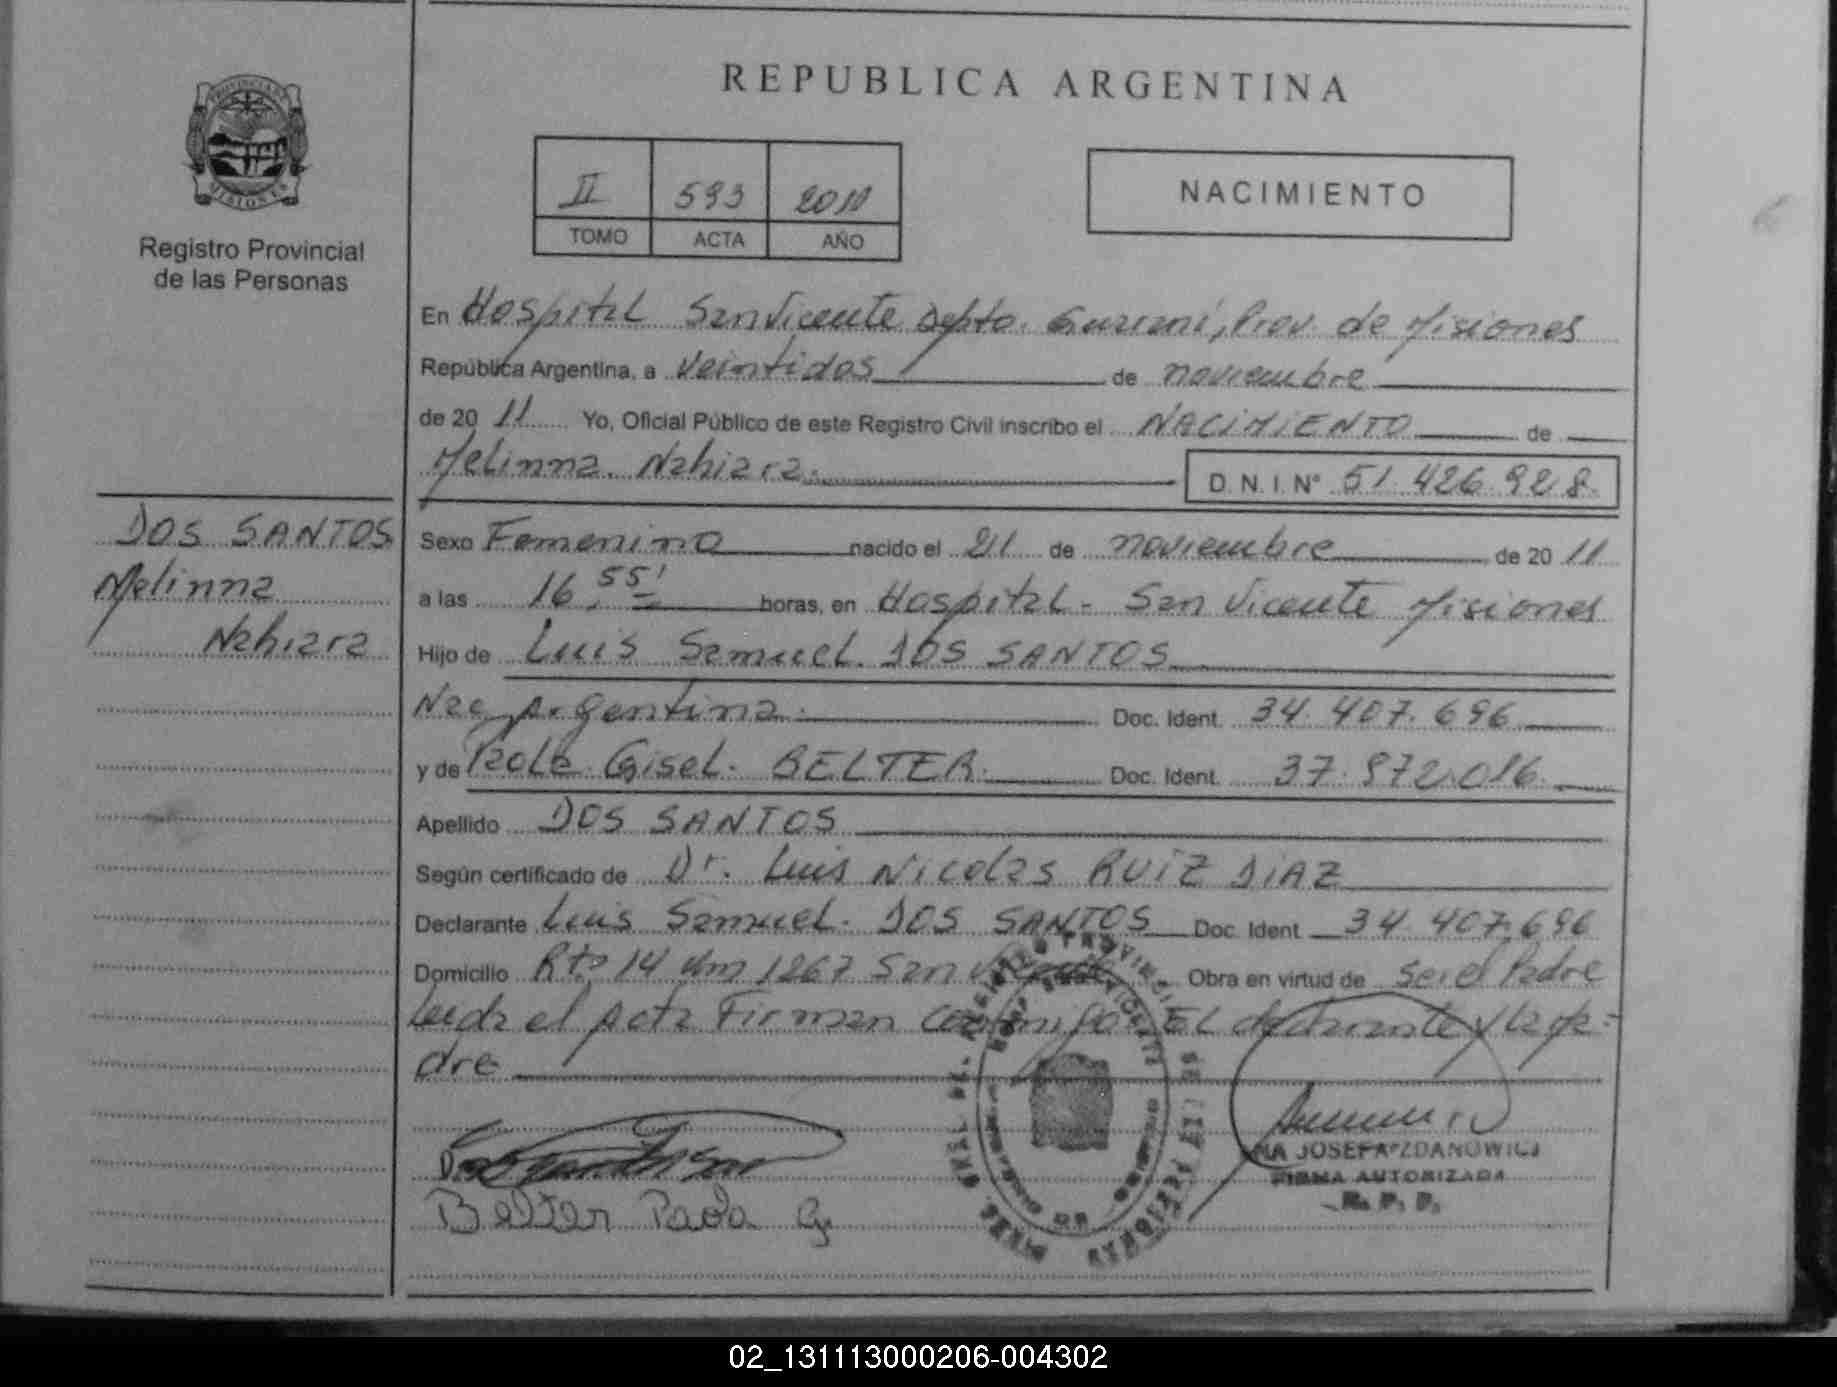 REPUBLICA ARGENTINA
PROVINCIA DE
MISIONES
Registro Provincial
de las Personas
II 593 2011
TOMO ACTA AÑO
NACIMIENTO
En Hospital San Vicente Depto. Guaraní, Prov. de Misiones
República Argentina, a veintidos de noviembre
de 20 11 Yo, Oficial Público de este Registro Civil inscribo el NACIMIENTO de
Melinna Nahiara. D.N.I. N° 51.426.928.
DOS SANTOS
Melinna
Nahiara
Sexo Femenino nacido el 21 de noviembre de 20 11
a las 16,55' horas, en Hospital - San Vicente Misiones
Hijo de Luis Samuel DOS SANTOS
Nac. Argentina. Doc. Ident. 34.407.696
y de Gisel. BELTER. Doc. Ident. 37.972.016.
Apellido DOS SANTOS
Según certificado de Dr. Luis Nicolas RUIZ DIAZ
Declarante Luis Samuel. DOS SANTOS Doc. Ident. 34.407.696
Domicilio Rta 14 Km 1267 San Vicente Obra en virtud de ser el Padre
Leida el acta Firman conmigo EL declarante y la ma-
dre
JOSEFA ZDANOWICZ
FIRMA AUTORIZADA
R. P. P.
Belter Paola G.
02_131113000206-004302